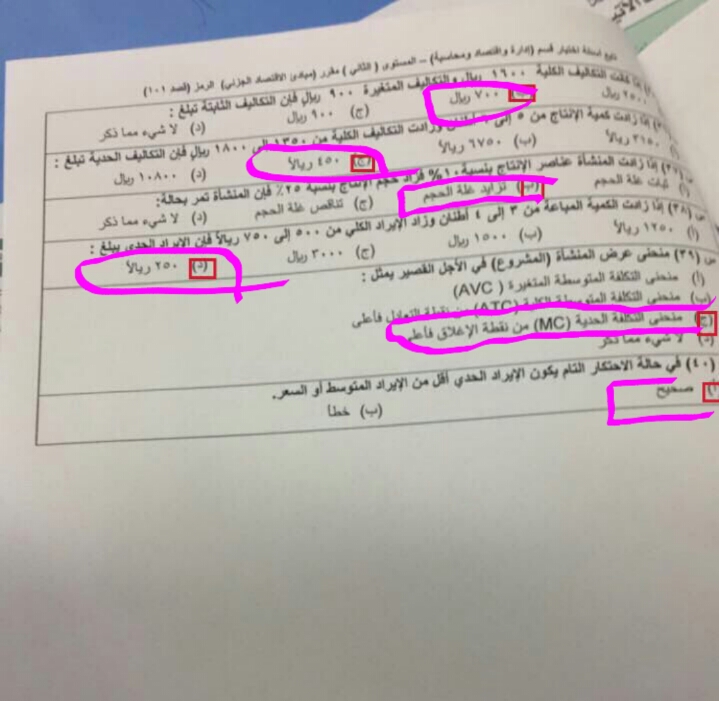 تابع أسئلة اختبار قسم (إدارة واقتصاد ومحاسبة) – المستوى ( الثاني ) مقرر (مبادئ الاقتصاد الجزئي) الرمز (قصد ١٠١)
إذا كانت التكاليف الكلية ١٦٠٠ ريال والتكاليف المتغيرة ٩٠٠ ريال فإن التكاليف الثابتة تبلغ :
٢٥٠٠ ريال (ب) ٧٠٠ ريال (ج) ٩٠٠ ريال (د) لا شيء مما ذكر
إذا زادت كمية الإنتاج من ٥ إلى وزادت التكاليف الكلية من ١٣٥٠ إلى ١٨٠٠ ريال فإن التكاليف الحدية تبلغ :
٣١٥٠ ريالاً (ب) ٦٧٥٠ ريالاً (ج) ٤٥٠ ريالاً (د) ١٠٨٠٠ ريال
س (٣٧) إذا زادت المنشأة عناصر الإنتاج بنسبة ١٠% فزاد حجم الإنتاج بنسبة ٢٥% فإن المنشأة تمر بحالة:
(أ) ثبات غلة الحجم (ب) تزايد غلة الحجم (ج) تناقص غلة الحجم (د) لا شيء مما ذكر
س (٣٨) إذا زادت الكمية المباعة من ٣ إلى ٤ أطنان وزاد الإيراد الكلي من ٥٠٠ إلى ٧٥٠ ريالاً فإن الإيراد الحدي يبلغ :
(أ) ١٢٥٠ ريالاً (ب) ١٥٠٠ ريال (ج) ٣٠٠٠ ريال (د) ٢٥٠ ريالاً
س (٣٩) منحنى عرض المنشأة (المشروع) في الأجل القصير يمثل :
(أ) منحنى التكلفة المتوسطة المتغيرة (AVC)
(ب) منحنى التكلفة المتوسطة الكلية (ATC) من نقطة التعادل فأعلى
(ج) منحنى التكلفة الحدية (MC) من نقطة الإغلاق فأعلى
(د) لا شيء مما ذكر
(٤٠) في حالة الاحتكار التام يكون الإيراد الحدي أقل من الإيراد المتوسط أو السعر.
(أ) صحيح (ب) خطأ